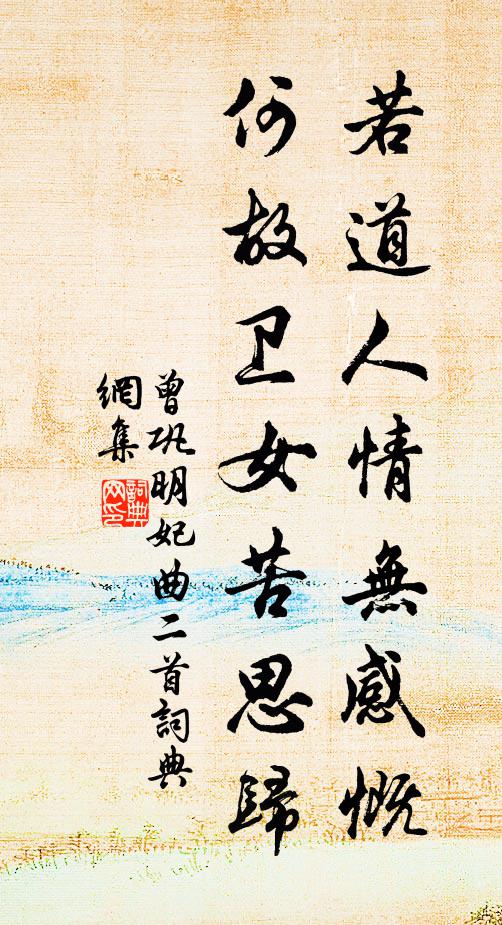 若道人情無感慨
何故卫女苦思歸
曾巩明妃曲二首詞典
網集
詞典
网印